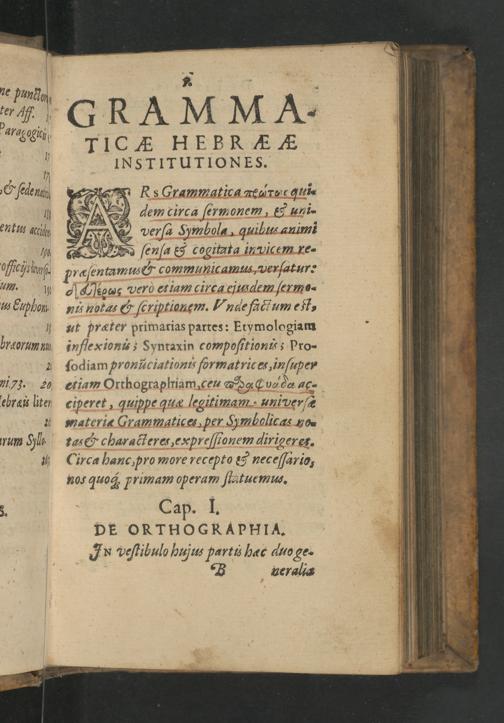 ne punctor
ter Aff.
Paragogici
17
, & sede nat
entus acciden
190
officijs
ium.
us Euphon
bræorum nu
ni 73. 20
Hebræis liter
26
arum Syll
GRAMMA-
TICÆ HEBRÆÆ
INSTITUTIONES.
ARs Grammatica πρώτως qui-
dem circa sermonem, & uni-
versa Symbola, quibus animi
sensa & cogitata invicem re-
præsentamus & communicamus, versatur:
vero etiam circa ejusdem sermo-
nis notas & scriptionem. Unde factum est,
ut præter primarias partes: Etymologiam
inflexionis; Syntaxin compositionis; Pro-
sodiam pronũciationis formatrices, insuper
etiam Orthographiam, ceu ac-
ciperet, quippe quæ legitimam universæ
materiæ Grammatices, per Symbolicas no-
tas & characteres, expressionem dirigeret.
Circa hanc, pro more recepto & necessario,
nos quoq; primam operam statuemus.
Cap. I.
DE ORTHOGRAPHIA.
IN vestibulo hujus partis hæc duo ge-
B neralia